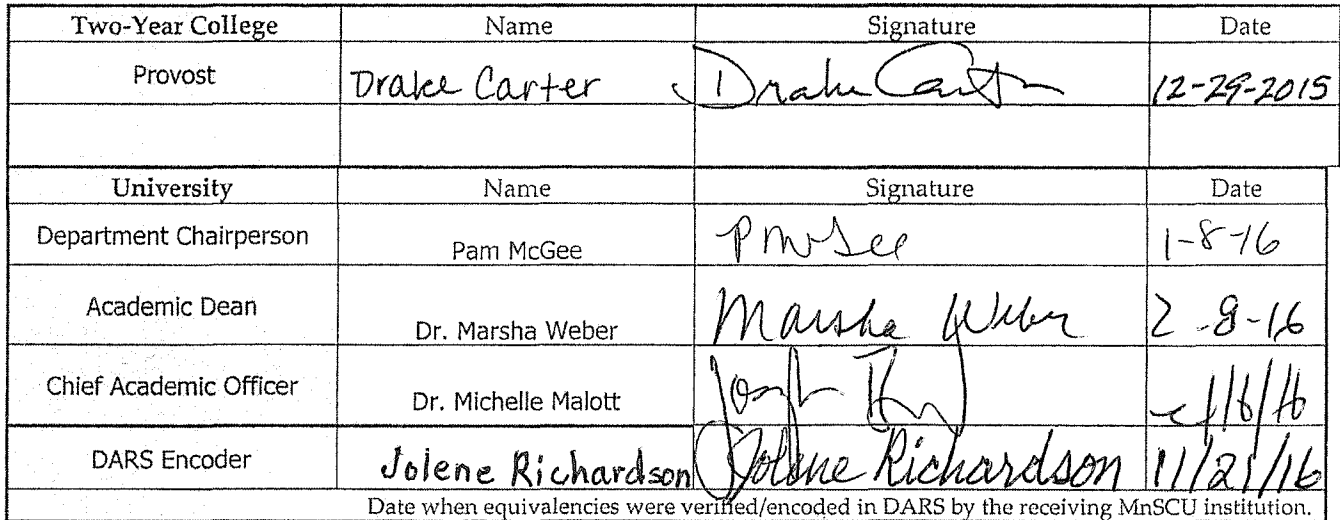 Two-Year College Name Signature Date
Provost Drake Carter Drake Carter 12-29-2015
University Name Signature Date
Department Chairperson Pam McGee P McGee 1-8-16
Academic Dean Dr. Marsha Weber Marsha Weber 2-8-16
Chief Academic Officer Dr. Michelle Malott
DARS Encoder Jolene Richardson Jolene Richardson 11/21/16
Date when equivalencies were verified/encoded in DARS by the receiving MnSCU institution.